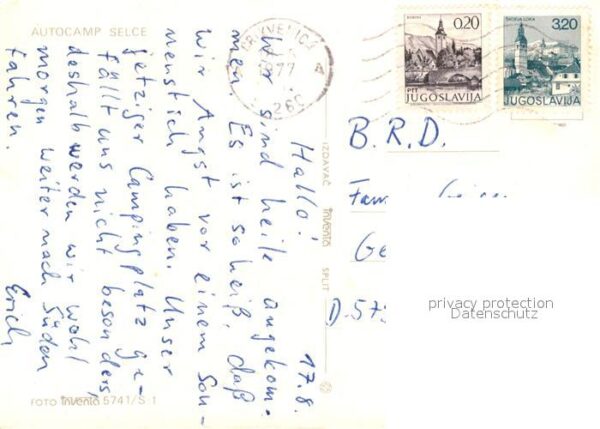 AUTOCAMP SELCE
17.8.
Hallo!
Wir sind heile angekom-
men. Es ist so heiß, daß
wir Angst vor einem Son-
nenstich haben. Unser
jetziger Campingplatz ge-
fällt uns nicht besonders,
deshalb werden wir wohl
morgen weiter nach Süden
fahren.
Erich
FOTO inventa 5741/S-1
IZDAVAČ inventa SPLIT
CRIKVENICA
77
4
0,20
PTT
JUGOSLAVIJA
ŠKOFJA LOKA
3,20
JUGOSLAVIJA
B.R.D.
Fam
Ge
D.573
privacy protection
Datenschutz